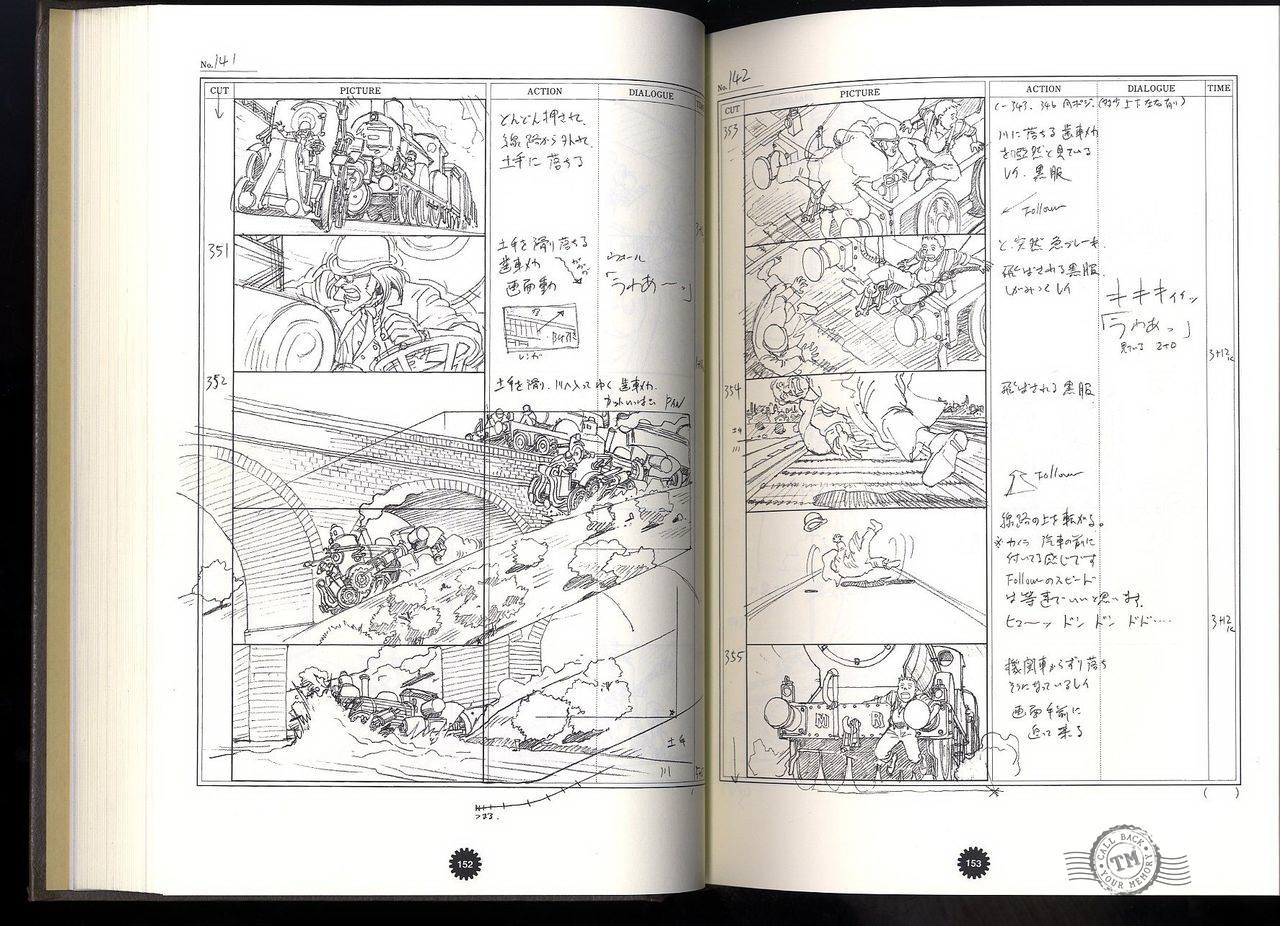 No. 141
CUT PICTURE ACTION DIALOGUE
どんどん押されて
線路から外れて
土手に落ちる
351
土手を滑り落ちる
歯車メカ
画面動
ガガガ
ウォール
「うわあ〜っ」
BG引き
レンガ
352
土手を滑り、川へ入ってゆく歯車メカ
カットいっぱい PAN
土手
152
No. 142
CUT PICTURE ACTION DIALOGUE TIME
353
川に落ちる歯車メカ
を唖然と見ている
レイ、黒服
Follow
と、突然急ブレーキ
飛ばされる黒服
しがみつくレイ
キキキイィッ
「うわあっ」
3+12
354
飛ばされる黒服
Follow
線路の上を転がる。
※カメラ 汽車の前に
付いてる感じです
Followのスピード
は等速でいいと思います。
ヒュ〜ッ ドン ドン ドド……
3+12
355
M R
機関車からずり落ち
そうになっているレイ
画面手前に
迫って来る
( )
153
CALL BACK
TM
YOUR MEMORY